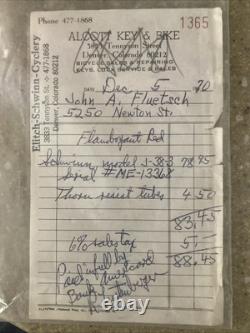 Phone 477-1868
1365
ALCOTT KEY & BIKE
3833 Tennyson Street
Denver, Colorado 80212
BICYCLE SALES & REPAIRING
KEYS, LOCK SERVICE & SALES
Elitch-Schwinn-Cyclery
3833 Tennyson St. 477-1868
Denver, Colorado 80212
DATE Dec 5 1970
John A. Fluetsch
5250 Newton St.
Flamboyant Red
Schwinn, model J-38-3 78.95
Serial #ME-13368
Thorn resist tubes 4 50
83.45
6% sales tax 5.
88.45
Paid in full by
Bank Americard